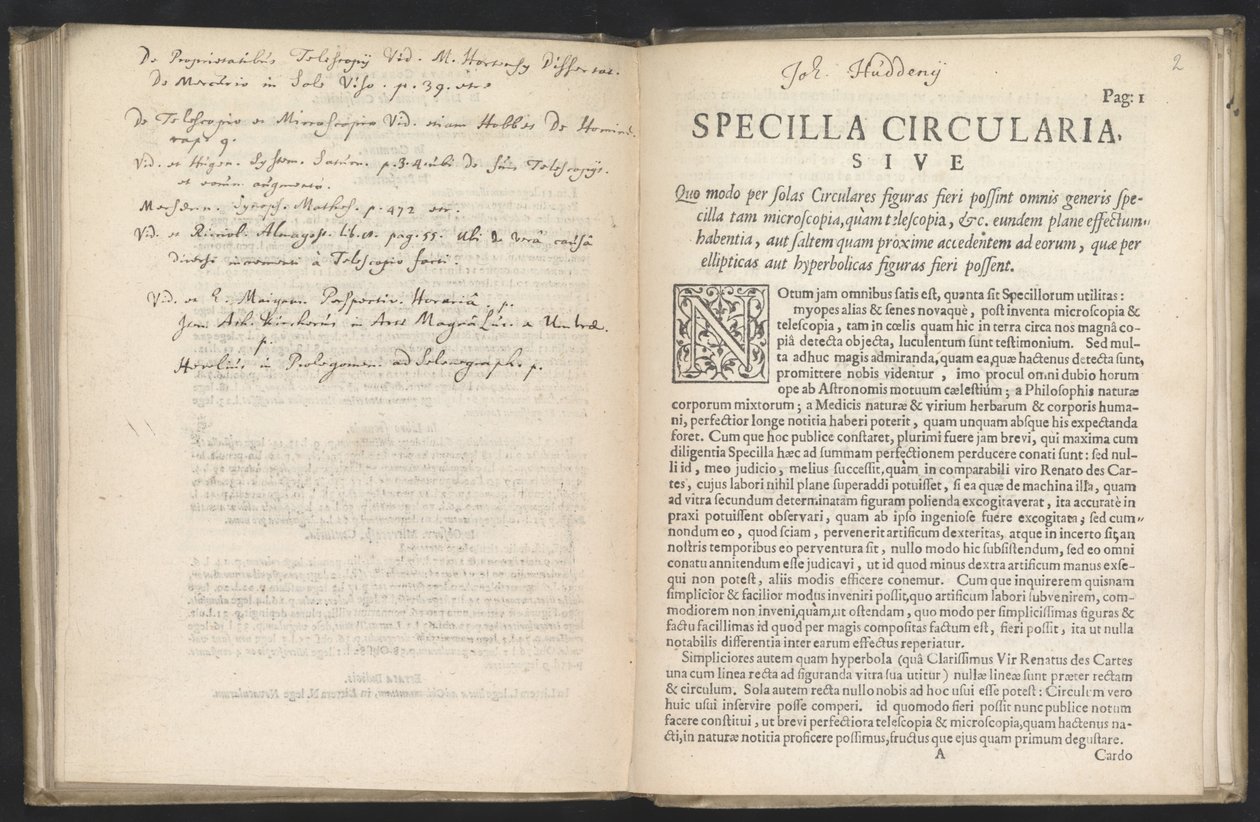 De Proprietatibus Telescopij Vid. M. Hortensij Dissertat.
De Mercurio in Sole Viso. p. 39. etc
De Telescopio et Microscopio Vid. etiam Hobbes De Homine
cap. 9.
Vid. et Hugen. System. Saturn. p. 3. 4. ubi De suis Telescopijs.
et eorum augmento.
Synops. Mathes. p. 472 etc.
Vid. et Ricciol. Almagest. lib. pag. 55. Ubi de verâ causâ
diversi incrementi a Telescopio facti.
Vid. et E. Maignan. Perspectiv. Horaria. p.
Item Ath. Kircherus in Arte Magnâ Luc. et Umbrae.
p.
Hevelius in Prolegomen. ad Selenograph. p.
Joh. Huddenij
2
Pag: 1
SPECILLA CIRCULARIA,
SIVE
Quo modo per solas Circulares figuras fieri possint omnis generis spe-
cilla tam microscopia, quàm telescopia, &c. eundem plane effectum
habentia, aut saltem quam proxime accedentem ad eorum, quæ per
ellipticas aut hyperbolicas figuras fieri possent.
NOtum jam omnibus satis est, quanta sit Specillorum utilitas:
myopes alias & senes novaquè, post inventa microscopia &
telescopia, tam in cœlis quam hic in terra circa nos magnâ co-
piâ detecta objecta, luculentum sunt testimonium. Sed mul-
ta adhuc magis admiranda, quam ea, quæ hactenus detecta sunt,
promittere nobis videntur, imo procul omni dubio horum
ope ab Astronomis motuum cælestium; a Philosophis naturæ
corporum mixtorum; a Medicis naturæ & virium herbarum & corporis huma-
ni, perfectior longe notitia haberi poterit, quam unquam absque his expectanda
foret. Cum que hoc publice constaret, plurimi fuere jam brevi, qui maxima cum
diligentia Specilla hæc ad summam perfectionem perducere conati sunt: sed nul-
li id, meo judicio, melius successit, quàm in comparabili viro Renato des Car-
tes, cujus labori nihil plane superaddi potuisset, si ea quæ de machina illa, quam
ad vitra secundum determinatam figuram polienda excogitaverat, ita accuratè in
praxi potuissent observari, quam ab ipso ingeniose fuere excogitata; sed cum
nondum eo, quod sciam, pervenerit artificum dexteritas, atque in incerto sit, an
nostris temporibus eo perventura sit, nullo modo hic subsistendum, sed eo omni
conatu annitendum esse judicavi, ut id quod minus dextra artificum manus exse-
qui non potest, aliis modis efficere conemur. Cum que inquirerem quisnam
simplicior & facilior modus inveniri possit, quo artificum labori subvenirem, com-
modiorem non inveni, quàm, ut ostendam, quo modo per simplicissimas figuras &
factu facillimas id quod per magis compositas factum est, fieri possit, ita ut nulla
notabilis differentia inter earum effectus reperiatur.
Simpliciores autem quam hyperbola (quâ Clarissimus Vir Renatus des Cartes
una cum linea recta ad figuranda vitra sua utitur) nullæ lineæ sunt præter rectam
& circulum. Sola autem recta nullo nobis ad hoc usui esse potest: Circulum vero
huic usui inservire posse comperi. id quomodo fieri possit nunc publice notum
facere constitui, ut brevi perfectiora telescopia & microscopia, quam hactenus na-
cti, in naturæ notitia proficere possimus, fructus que ejus quam primum degustare.
A
Cardo